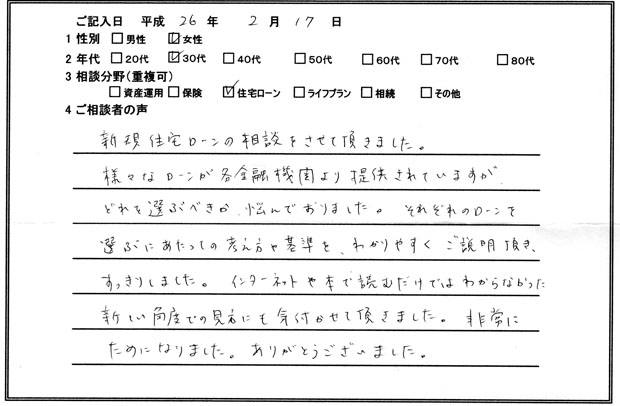 ご記入日 平成 26 年 2 月 17 日
1 性別 □男性 ☑女性
2 年代 □20代 ☑30代 □40代 □50代 □60代 □70代 □80代
3 相談分野(重複可)
□資産運用 □保険 ☑住宅ローン □ライフプラン □相続 □その他
4 ご相談者の声
新規住宅ローンの相談をさせて頂きました。
様々なローンが各金融機関より提供されていますが、
どれを選ぶべきか、悩んでおりました。それぞれのローンを
選ぶにあたっての考え方や基準を、わかりやすくご説明頂き、
すっきりしました。インターネットや本で読むだけではわからなかった
新しい角度での見方にも気付かせて頂きました。非常に
ためになりました。ありがとうございました。